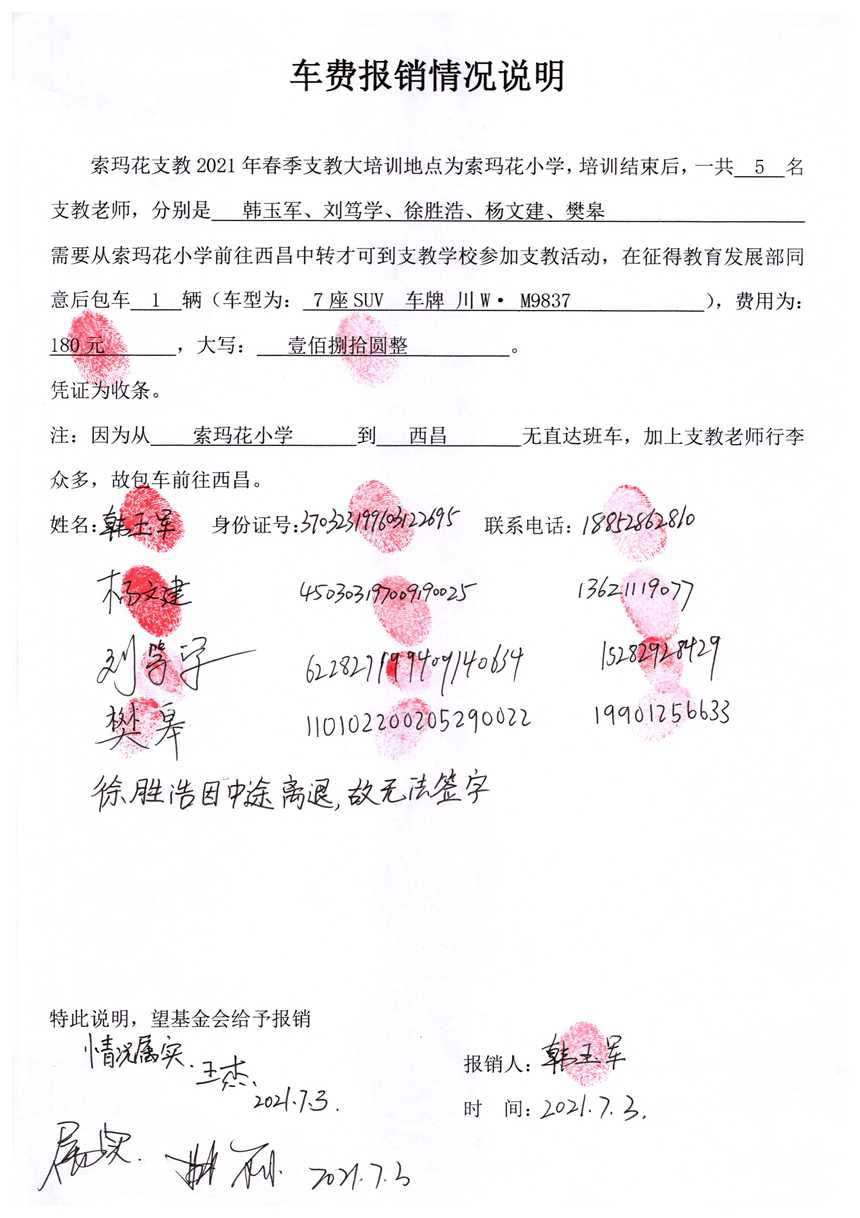 车费报销情况说明
索玛花支教2021年春季支教大培训地点为索玛花小学，培训结束后，一共 5 名
支教老师，分别是 韩玉军、刘笃学、徐胜浩、杨文建、樊皋
需要从索玛花小学前往西昌中转才可到支教学校参加支教活动，在征得教育发展部同
意后包车 1 辆（车型为： 7座SUV 车牌 川W· M9837 ），费用为：
180元 ，大写： 壹佰捌拾圆整 。
凭证为收条。
注：因为从 索玛花小学 到 西昌 无直达班车，加上支教老师行李
众多，故包车前往西昌。
姓名：韩玉军 身份证号：370323199603122695 联系电话：18852862810
杨文建 450303197009190025 13621119077
刘笃学 622827199409140634 15282928429
樊皋 110102200205290022 19901256633
徐胜浩因中途离退，故无法签字
特此说明，望基金会给予报销
情况属实. 王杰.
报销人：韩玉军
2021.7.3.
时 间：2021.7.3.
属实. 2021.7.3